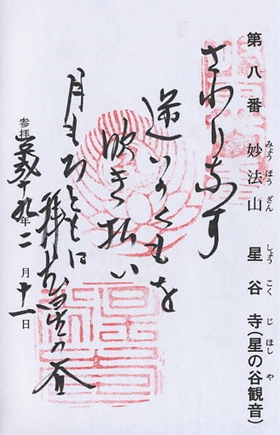 第八番 妙法山 星谷寺(星の谷観音)
みょう ほう ざん しょう こく じ ほし や
さわりなす
迷いのくもを
吹き払い
月もろともに
拝む星の谷
参拝 平成十九年二月十一日